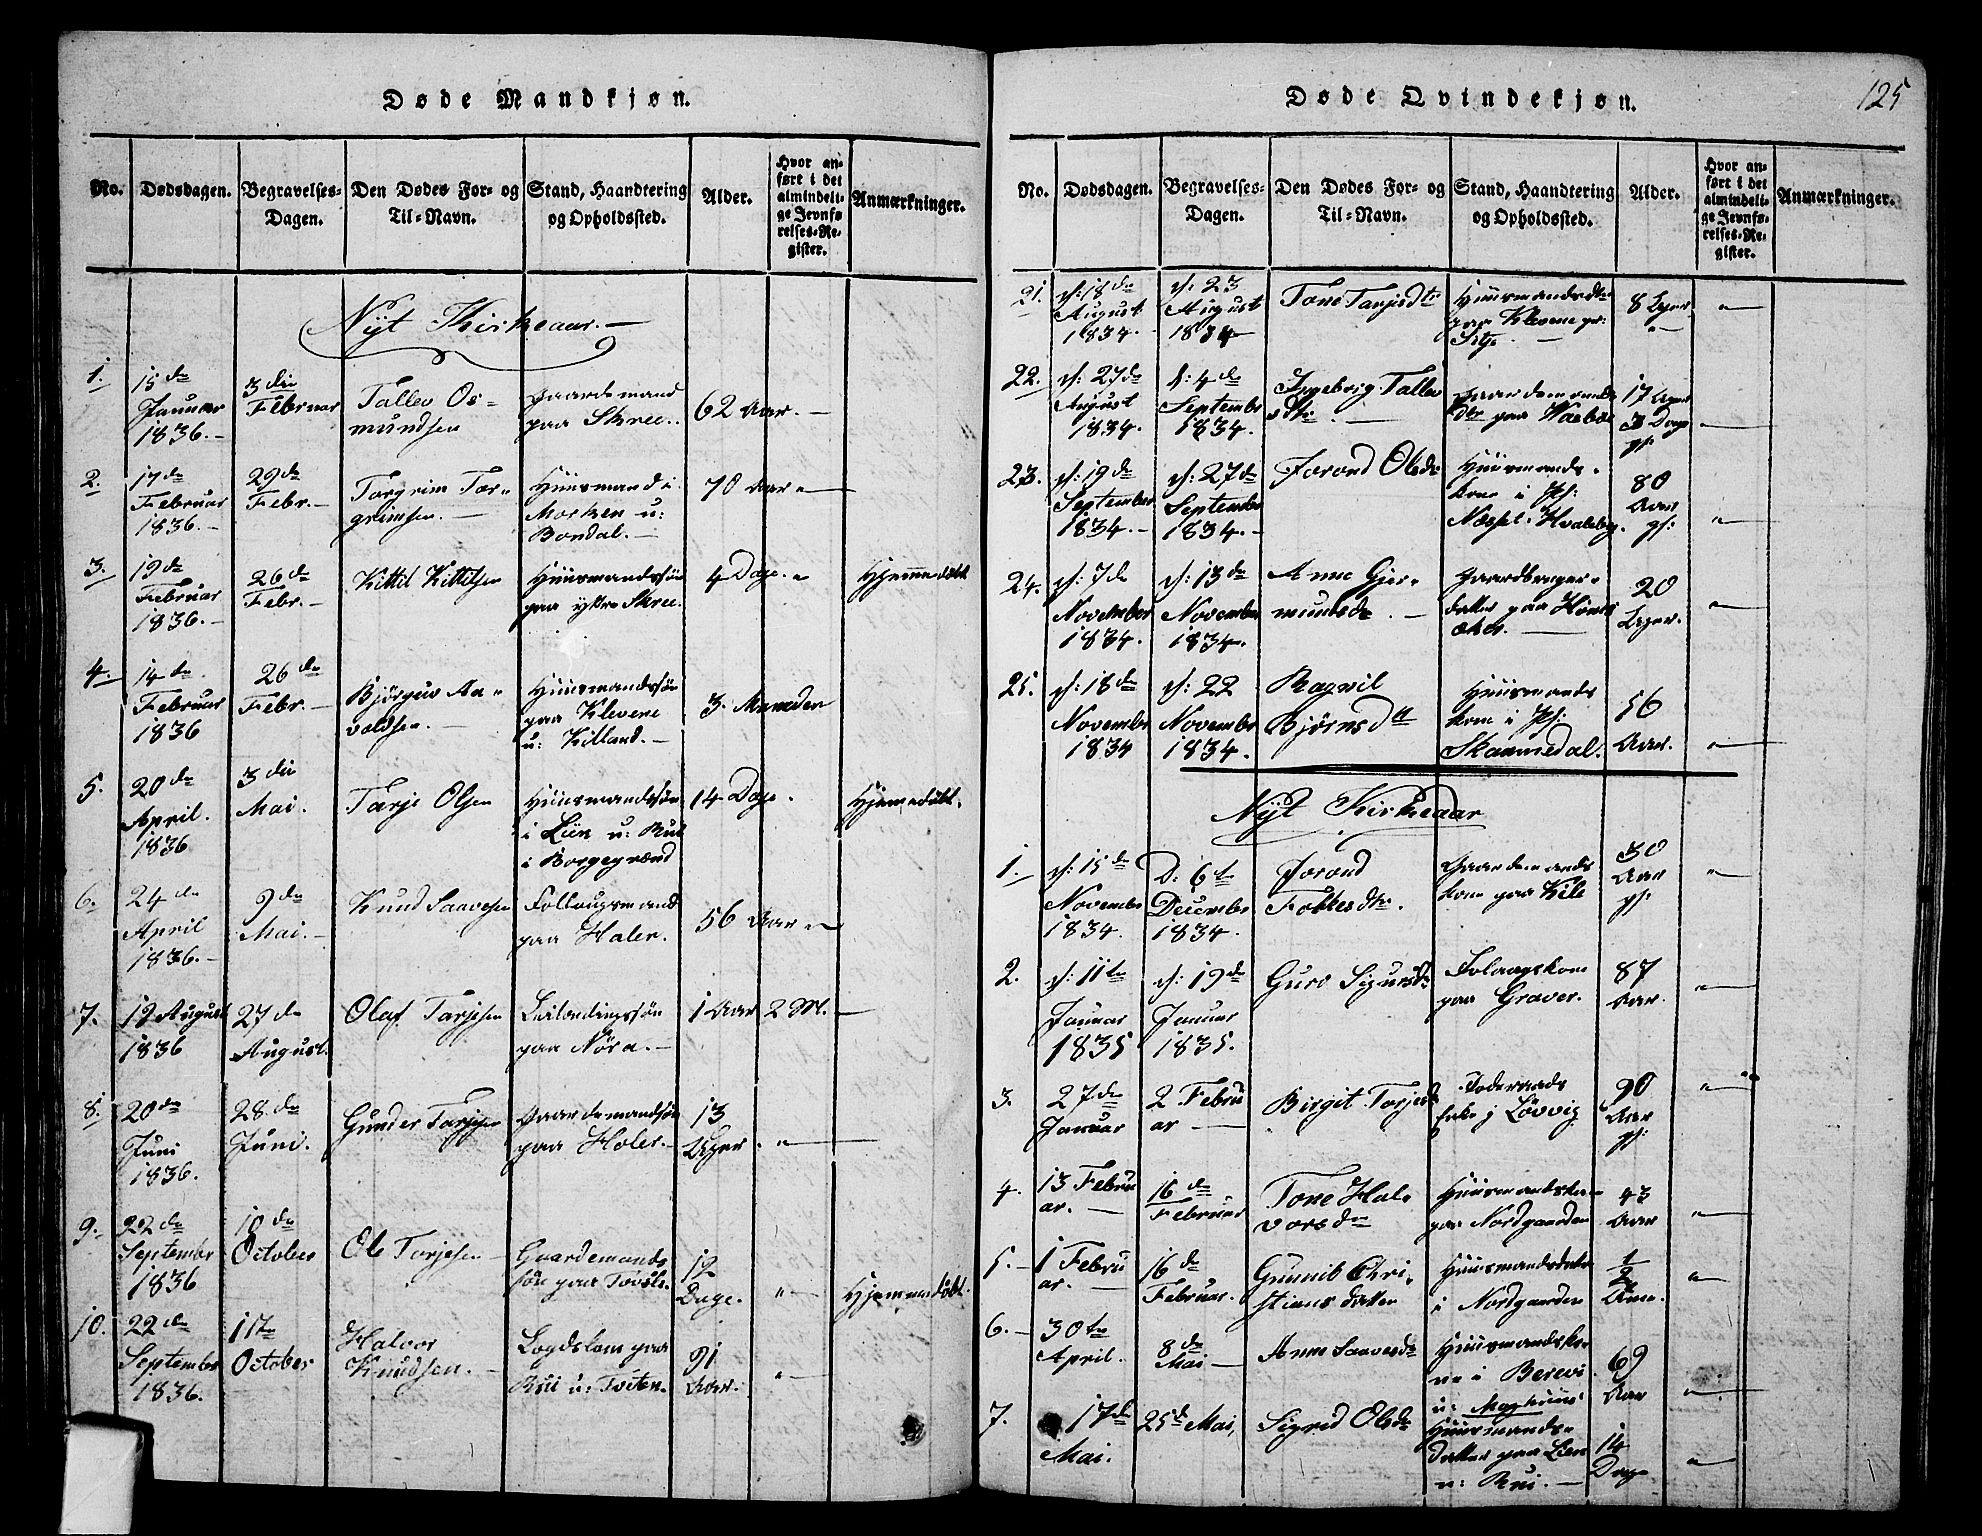 Døde Mandkjøn.
No. Dødsdagen. Begravelses-Dagen. Den Dødes For- og Til-Navn. Stand, Haandtering og Opholdssted. Alder. Hvor anført i det almindelige Jevnførelses-Register. Anmærkninger.
Nyt Kirkeaar. —
1. 15de Januar 1836. — 3die Februar Tallev Osmundsen gaardemand paa Skree. 62 Aar. —
2. 17de Februar 1836. — 29de Febr. — Torgrim Torgrimsen. — Huusmand i Morken u: Bondal. — 70 Aar „ —
3. 19de Februar 1836. — 26de Febr. — Kittil Kittilsen Huusmandssøn paa ytre Skree. 4 Dage. „ Hjemmedøbt
4. 14de Februar 1836 26de Febr. — Bjørguv Aavoldsen. — Huusmandssøn paa Klevene u: Killand. — 3 Maaneder
5. 20de April. 1836 3die Mai. Tarje Olsen Huusmandssøn i Lien u: Rui i Borgegrænd 14 Dage. Hjemmedøbt.
6. 24de April 1836. — 9de Mai. — Knud Saavesen Follougsmand paa Haler. 56 Aar „
7. 19 August 1836 27de August. Olaf Tarjesen søn paa Nøra. — 1 Aar 2 M. —
8. 20de Juni 1836. 28de Juni. Gunder Tarjesen Gaardemandsøn paa Holer. — 13 Uger. „ —
9. 22de September 1836 10de October Ole Torjesen — Gaardemands søn paa 12 Dage. „ — Hjemmedøbt.
10. 22de September 1836. 11te October Halvor Knudsen. — Logdslem paa Rui u: Tveten. 91 Aar. „ —
Døde Qvindekjøn. 125
No. Dødsdagen. Begravelses-Dagen. Den Dødes For- og Til-Navn. Stand, Haandtering og Opholdssted. Alder. Hvor anført i det almindelige Jevnførelses-Register. Anmærkninger.
21. d: 18de August 1834. d: 23 August 1834 Tone Tarjesdtr Huusmandsdtr paa Klevene — 8 Uger „ —
22. d: 27de August 1834. d: 4de September 1834. Ingebrig Tallevsdtr. — gaardemandsdtr paa 17 Uger 3 Dage —
23. d: 19de September 1834. — d: 27de September 1834. — Jorond Olsdr Huusmandskone i Næset i Hvaleby. 80 Aar „ —
24. d: 7de November 1834. d: 13de November 1834. Anne Gjermundsdr — Gaardbrugerdatter paa — 20 Uger. „ —
25. d: 18de November 1834 d: 22 November 1834. Ragnil Bjørnsdtr Huusmandskone i Skammedal. 56 Aar. „ —
Nyt Kirkeaar
1. d: 15de November 1834. D: 6te December 1834. Jorond Folkesdtr. Gaardemandskone paa Kile 30 Aar „ —
2. d: 11te Januar 1835 d: 19de Januar 1835. Guro Sigursdr Folaugskone paa Graver. 87 Aar. „ —
3. 27de Januar 2 Februar — Birgit Torjesd i Løvvig 90 Aar „ —
4. 13 Februar. — 16de Februar Tone Halvorsdr Huusmandskone paa Nordgaarden 43 Aar „ —
5. — 1 Februar. — 16de Februar. Gunnild Christiansdatter Huusmandsdatter i Nordgaarden 1/2 Aar. „ —
6. — 30te April. 8de Mai — Anne Saavesdr Huusmandskone i Berevi u: 69 Aar „ —
7. 17de Mai. 25de Mai, Sigrid Olsdr Huusmandsdatter paa Lien u: Rui. — 14 Dage „ —